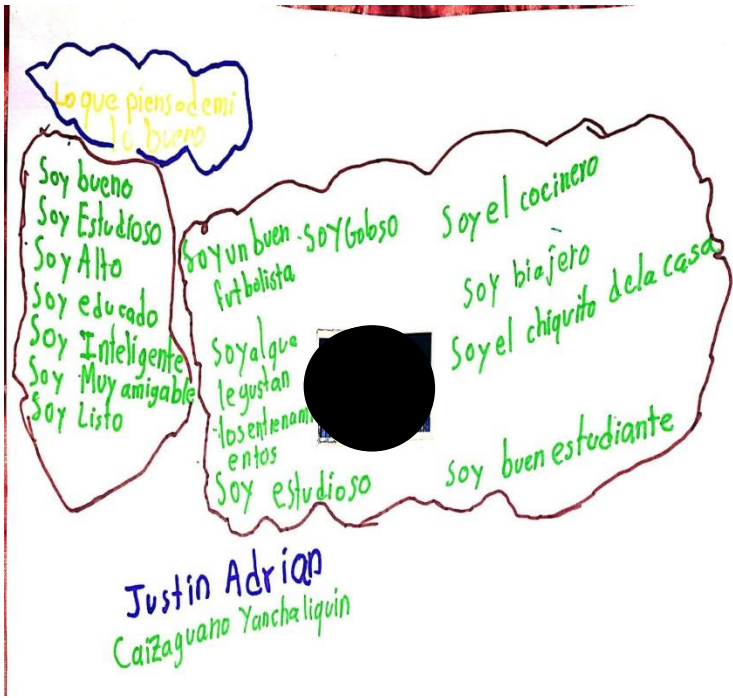 Lo que pienso de mi
lo bueno
Soy bueno
Soy Estudioso
Soy Alto
Soy educado
Soy Inteligente
Soy Muy amigable
Soy Listo
Soy un buen
futbolista
- Soy Goloso
Soy al que
le gustan
los entrenami
entos
Soy estudioso
Soy el cocinero
Soy biajero
Soy el chiquito dela casa
Soy buen estudiante
Justin Adrian
Caizaguano Yanchaliquin